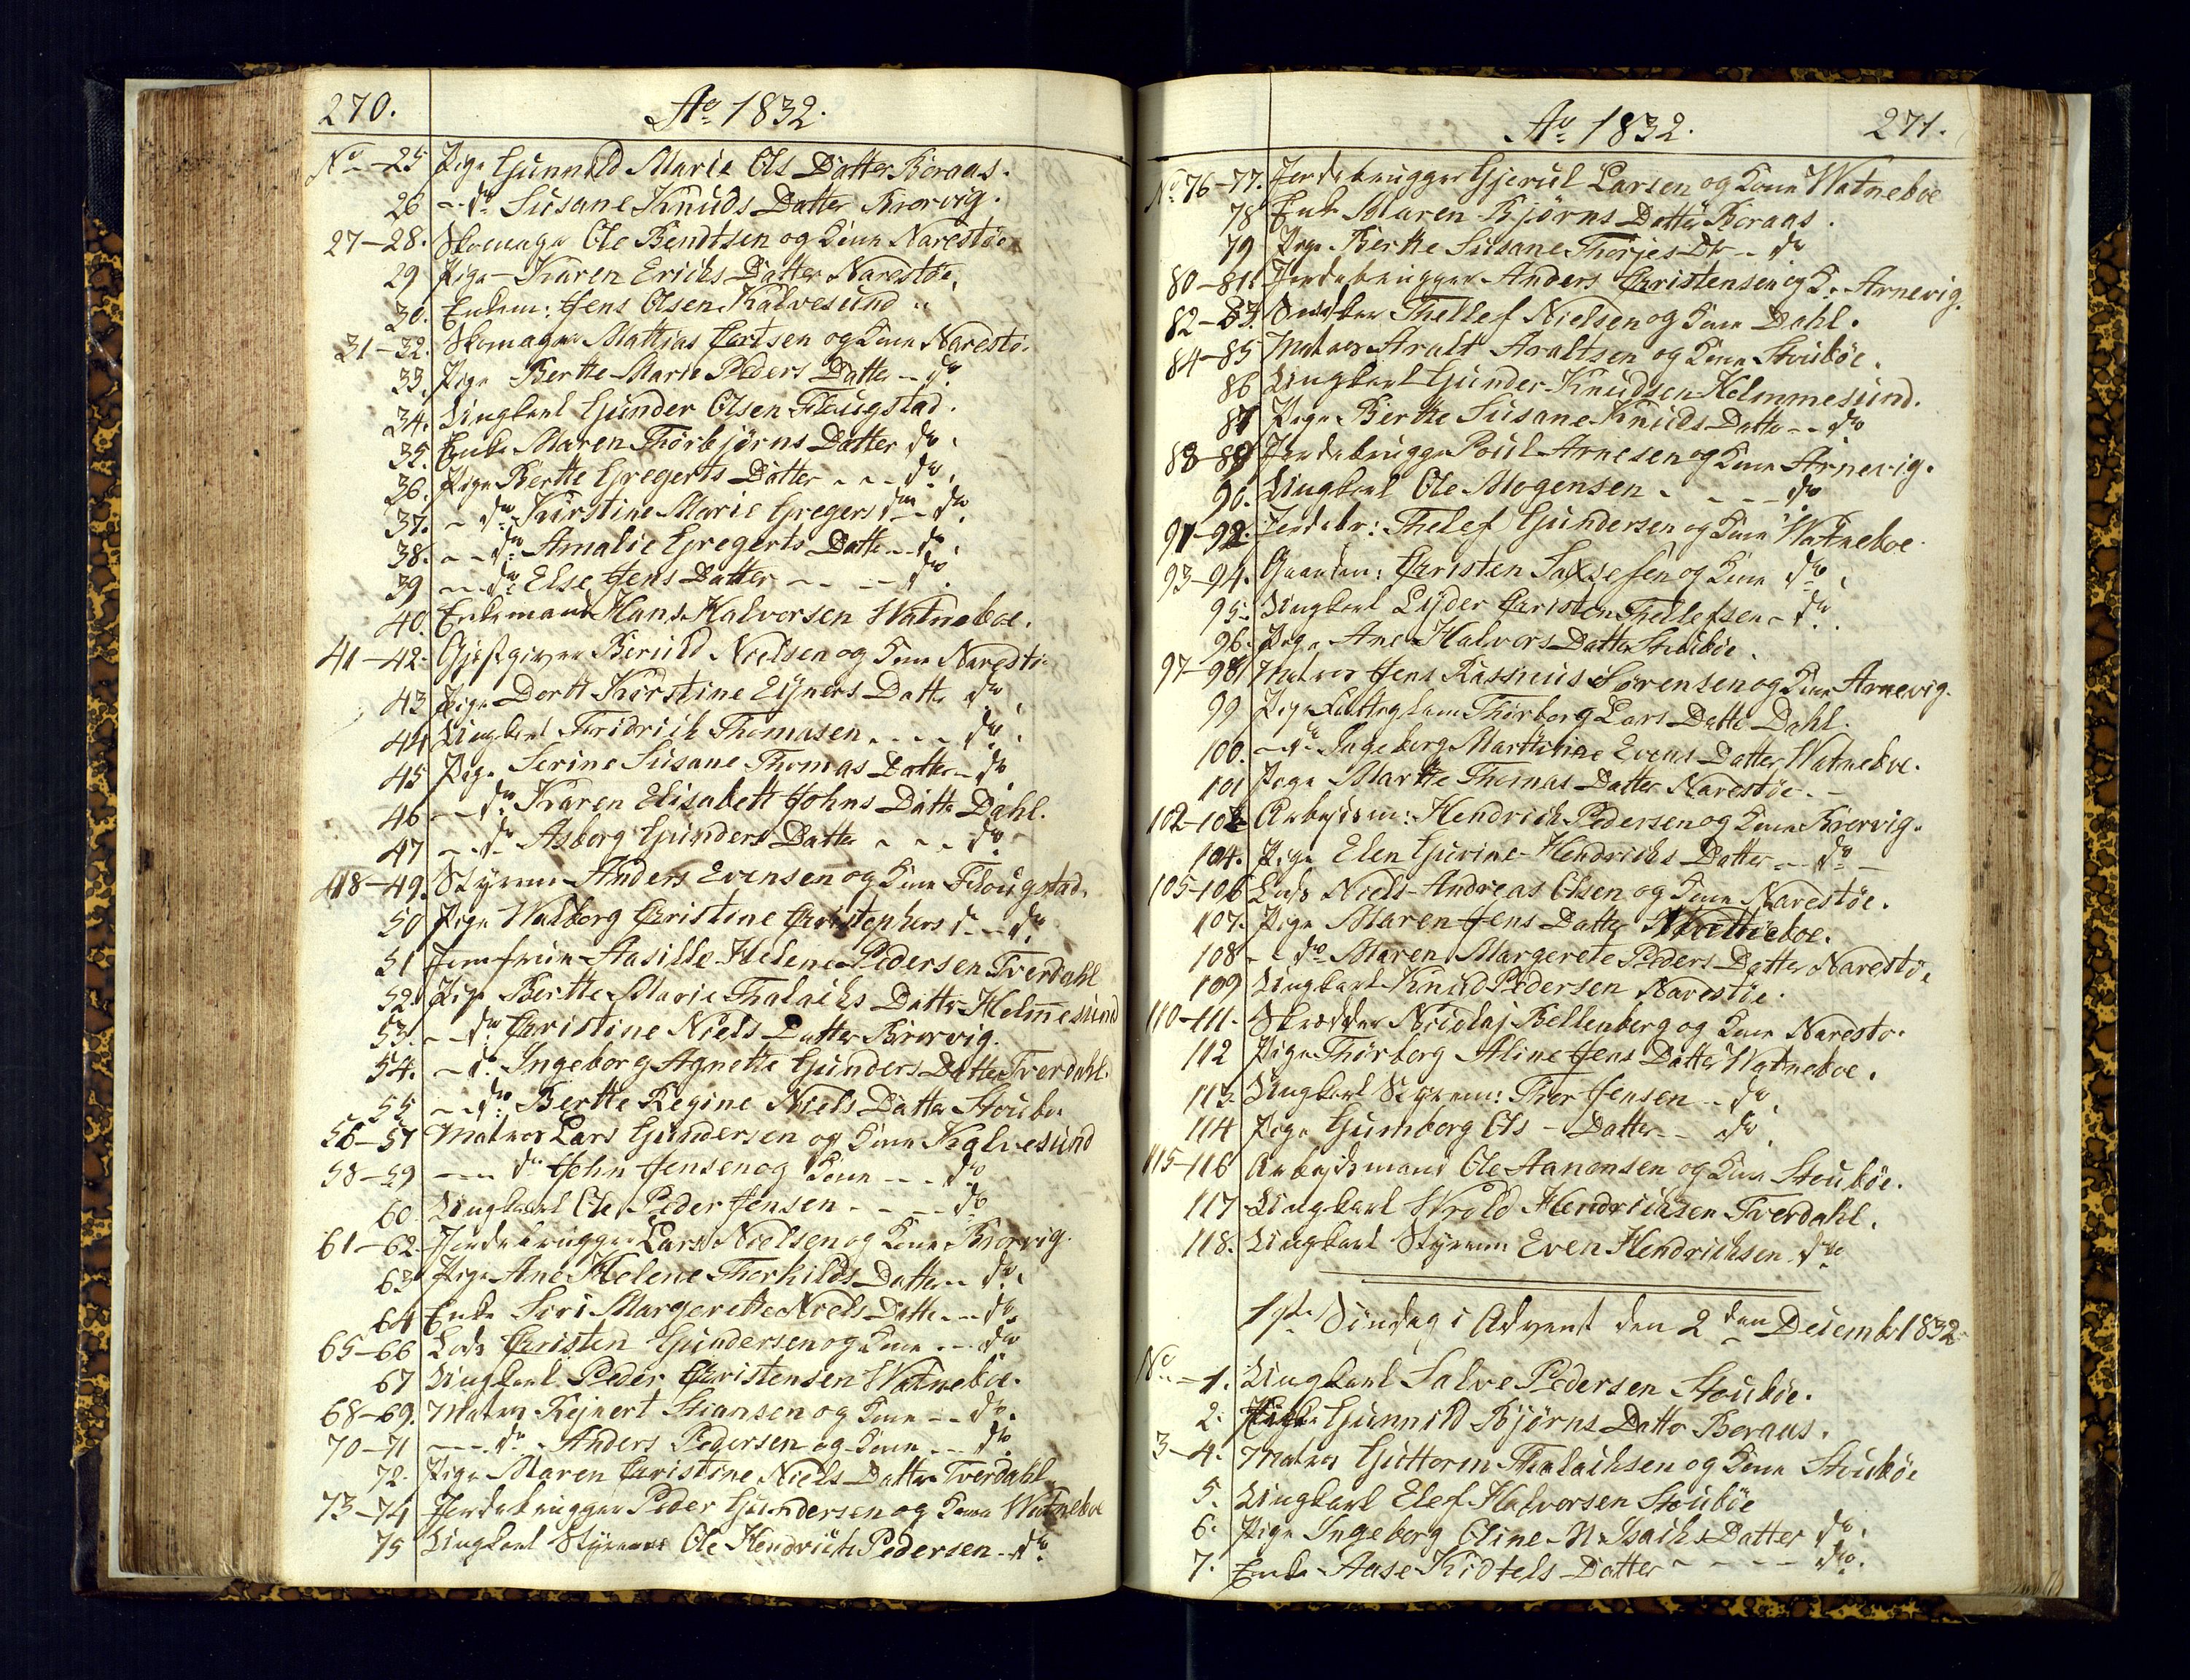 270. Ao 1832.
No -25 Pige Gunnild Marie Ols Datter Boraas.
26 - do Susane Knuds Datter Krorvig.
27-28. Skomager Ole Bendtsen og Kone Narestöe
29 Pige Karen Erichs Datter Narestöe,
30. Enkem: Jens Olsen Kalvesund
31-32. Skomager Mattias Gertsen og Kone Narestö.
33. Pige Berthe Marie Peders Datter - do
34. Ungkarl Gunder Olsen Flougstad.
35. Enke Maren Thorbjørns Datter do.
36. Pige Berthe Gregerts Datter - - - do.
37. - do Kirstine Marie Gregers dtr - do
38. - - do Amalie Gregerts Datter - do.
39 - - do Else Jens Datter - - - do.
40. Enkemand Hans Halvorsen Watneboe.
41-42. Gjestgiver Beruld Nielsen og Kone Narestö.
43 Pige Dorth Kirstine Ejners Datter do,
44 Ungkarl Fridrich Thomasen - - - do.
45 Pige Serine Susane Thomas Datter - do
46 - - do Karen Elisabeth Johns Datter Dahl.
47 - - do Asborg Gunders Datter - - - do.
48-49. Styrmn Anders Evensen og Kone Flougstad.
50 Pige Walborg Christine Christophers d. - - do.
51 Jomfrue Aasille Helene Pedersen Tverdahl
52. Pige Berthe Marie Thalachs Datter Helmesund
53. - - do Christine Niels Datter Krorvig.
54. - do. Ingeborg Agnethe Gunders Datter Tverdahl.
55 - - do: Berthe Regine Niels Datter Stoubø
56-57 Matros Lars Gundersen og Kone Kalvesund
58-59 - - - do John Jensen og Kone - - - do
60 Ungkarl Ole Peder Jensen - - - - do
61-62. Jordebrugger Lars Nielsen og Kone Krorvig.
63 Pige Ane Helene Thorkilds Datter - do.
64 Enke Siri Margerethe Niels Datter - - do
65-66 Lods Christen Gundersen og Kone - - - do
67 Ungkarl Peder Christensen Watneböe.
68-69. Matros Rejnert Stiansen og Kone - - do.
70-71 - - - do - Anders Pedersen og Kone - - do.
72. Pige Maren Christine Niels Datter Tverdahl
73-74 Jordebrugger Peder Gundersen og Kone Watneboe
75 Ungkarl Styrmn Ole Hendrich Pedersen - do.
Ao 1832. 271.
No 76-77. Jordebrugger Gjerul Larsen og Kone Watneboe
78 Enke Maren Bjørns Datter Boraas.
79 Pige Berthe Susane Thorjes Dtr - do
80-81. Jordebrugger Anders Christensen og K. Arnevig.
82-83. Snedker Thellef Nielsen og Kone Dahl.
84-85 Matros Aralt Araltsen og Kone Stouböe.
86 Ungkarl Gunder Knudsen Helmmesund.
87 Pige Berthe Susane Knuds Datter - - do
88-89 Jordebrugger Poul Arnesen og Kone Arnevig.
90. Ungkarl Ole Mogensen - - - - do
91-92. Jordebr: Thelef Gundersen og Kone Watneboe
93-94. Gaardm: Christen Saxesen og Kone do.
95. Ungkarl Lyder Christen Thellefsen - do.
96. Pige Ane Halvors Datter Stouböe.
97-98 Matros Jens Rassmus Sørensen og Kone Arnevig.
99 Pige Thorborg Lars Datter Dahl.
100. - do Ingeborg Marthine Evens Datter Watneboe.
101 Pige Marthe Thomas Datter Narestöe. -
102-103 Arbejdsm: Hendrich Pedersen og Kone Krorvig.
104. Pige Elen Gurine Hendrichs Datter - - do -
105-106 Lods Niels Andreas Olsen og Kone Narestöe.
107. Pige Maren Jens Datter Watneboe.
108 - - do Maren Margerete Peders Datter Narestö.
109 Ungkarl Knud Pedersen Narestöe.
110-111. Skrædder Nicolaj Bellenberg og Kone Narestö.
112 Pige Thorborg Aline Jens Datter Watneboe.
113. Ungkarl Styrm: Thor Jensen - - do,
114 Pige Gumborg Ols - Datter - - do.
115-116 Arbejdsmand Ole Aanonsen og Kone Stouböe.
117 Ungkarl Wrold Hendrichsen Tverdahl.
118. Ungkarl Styrmn Even Hendrichsen do.
1ste Søndag i Advent den 2den Decembr 1832
No -1. Ungkarl Salve Pedersen Stouböe.
2. Pige Gunnild Bjørns Datter Boraas.
3-4. Matros Guttorm Thalachsen og Kone Stouböe
5. Ungkarl Elef Halvorsen Stouböe
6. Pige Ingeborg Oline N. Isachs Datter do.
7. Enke Aase Kidtels Datter - - - - do.